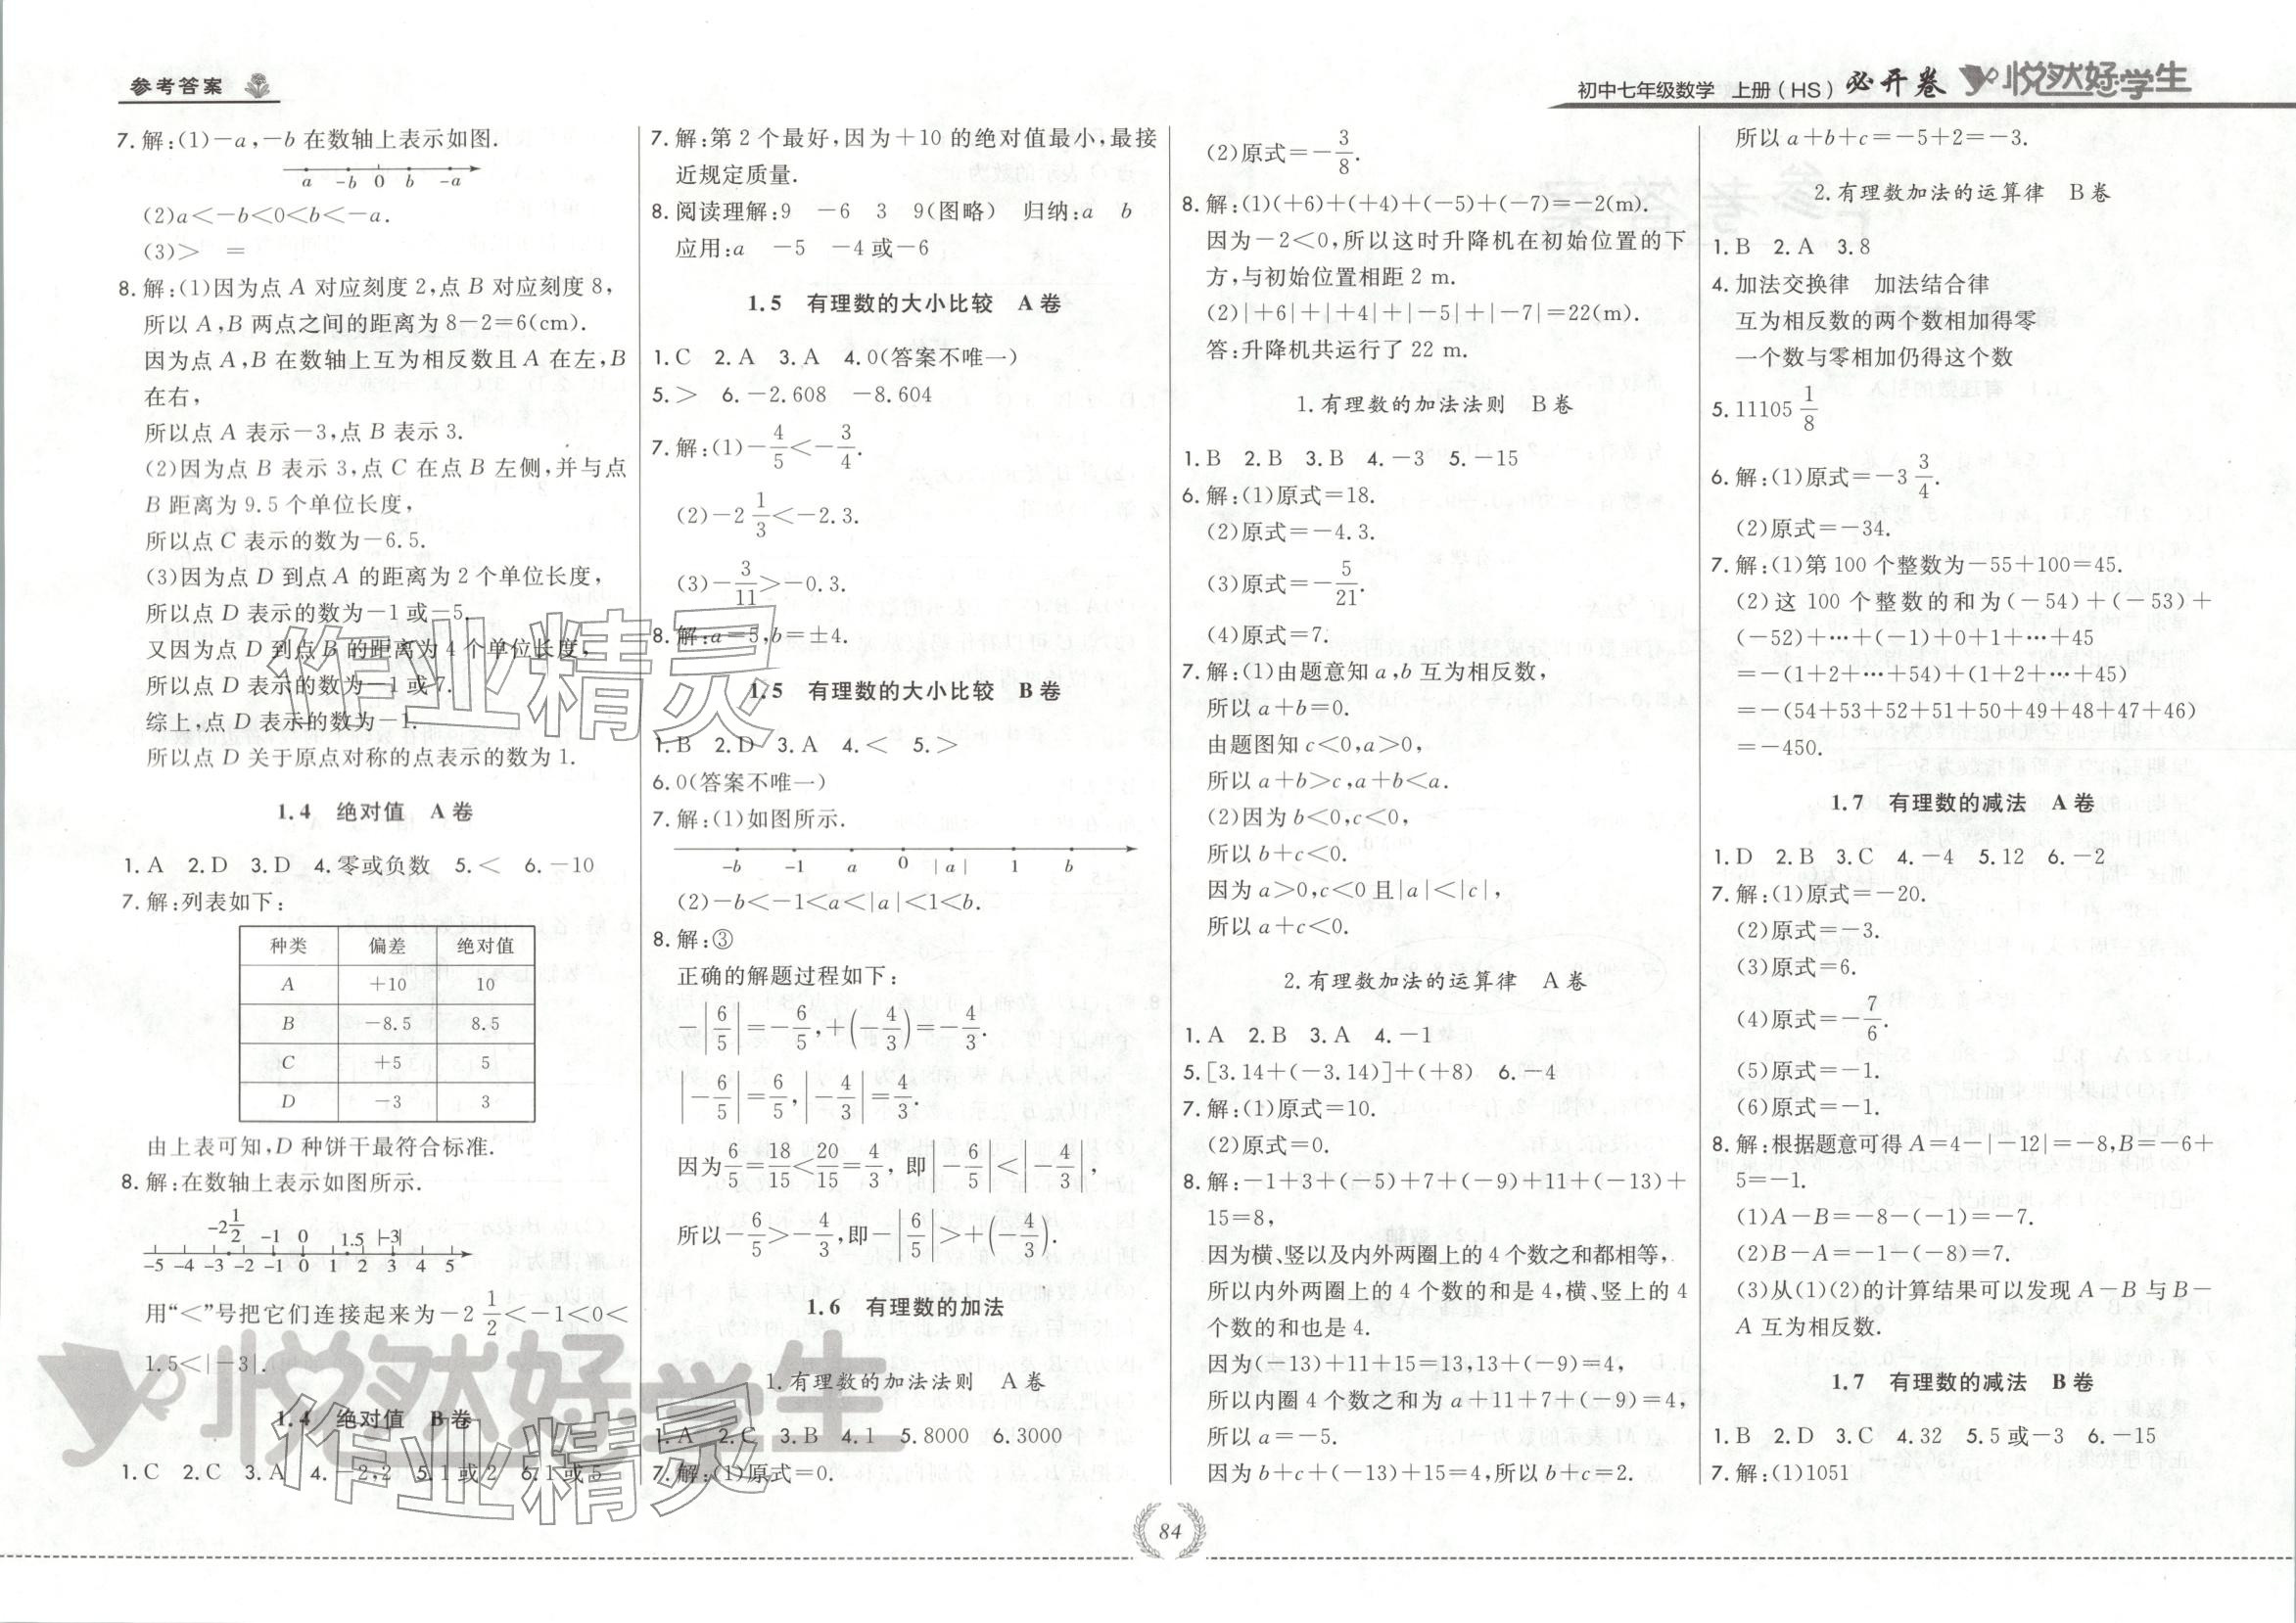 参考答案
初中七年级数学 上册(HS) 必开卷 悦然好学生
7.解:(1)-a,-b在数轴上表示如图.
a -b 0 b -a
(2)a<-b<0<b<-a.
(3)> =
8.解:(1)因为点A对应刻度2,点B对应刻度8,
所以A,B两点之间的距离为8-2=6(cm).
因为点A,B在数轴上互为相反数且A在左,B
在右,
所以点A表示-3,点B表示3.
(2)因为点B表示3,点C在点B左侧,并与点
B距离为9.5个单位长度,
所以点C表示的数为-6.5.
(3)因为点D到点A的距离为2个单位长度,
所以点D表示的数为-1或-5.
又因为点D到点B的距离为4个单位长度,
所以点D表示的数为-1或7.
综上,点D表示的数为-1.
所以点D关于原点对称的点表示的数为1.
1.4 绝对值 A卷
1.A 2.D 3.D 4.零或负数 5.< 6.-10
7.解:列表如下:
种类 偏差 绝对值
A +10 10
B -8.5 8.5
C +5 5
D -3 3
由上表可知,D种饼干最符合标准.
8.解:在数轴上表示如图所示.
-2 1/2 -1 0 1.5 |-3|
-5 -4 -3 -2 -1 0 1 2 3 4 5
用“<”号把它们连接起来为-2 1/2<-1<0<
1.5<|-3|.
1.4 绝对值 B卷
1.C 2.C 3.A 4.-2,2 5.1或2 6.1或5
7.解:第2个最好,因为+10的绝对值最小,最接
近规定质量.
8.阅读理解:9 -6 3 9(图略) 归纳:a b
应用:a -5 -4或-6
1.5 有理数的大小比较 A卷
1.C 2.A 3.A 4.0(答案不唯一)
5.> 6.-2.608 -8.604
7.解:(1)-4/5<-3/4.
(2)-2 1/3<-2.3.
(3)-3/11>-0.3.
8.解:a=5,b=±4.
1.5 有理数的大小比较 B卷
1.B 2.D 3.A 4.< 5.>
6.0(答案不唯一)
7.解:(1)如图所示.
-b -1 a 0 |a| 1 b
(2)-b<-1<a<|a|<1<b.
8.解:③
正确的解题过程如下:
-|6/5|=-6/5,+(-4/3)=-4/3.
|-6/5|=6/5,|-4/3|=4/3.
因为6/5=18/15<20/15=4/3,即|-6/5|<|-4/3|,
所以-6/5>-4/3,即-|6/5|>+(-4/3).
1.6 有理数的加法
1.有理数的加法法则 A卷
1.A 2.C 3.B 4.1 5.8000 6.3000
7.解:(1)原式=0.
(2)原式=-3/8.
8.解:(1)(+6)+(+4)+(-5)+(-7)=-2(m).
因为-2<0,所以这时升降机在初始位置的下
方,与初始位置相距2 m.
(2)|+6|+|+4|+|-5|+|-7|=22(m).
答:升降机共运行了22 m.
1.有理数的加法法则 B卷
1.B 2.B 3.B 4.-3 5.-15
6.解:(1)原式=18.
(2)原式=-4.3.
(3)原式=-5/21.
(4)原式=7.
7.解:(1)由题意知a,b互为相反数,
所以a+b=0.
由题图知c<0,a>0,
所以a+b>c,a+b<a.
(2)因为b<0,c<0,
所以b+c<0.
因为a>0,c<0且|a|<|c|,
所以a+c<0.
2.有理数加法的运算律 A卷
1.A 2.B 3.A 4.-1
5.[3.14+(-3.14)]+(+8) 6.-4
7.解:(1)原式=10.
(2)原式=0.
8.解:-1+3+(-5)+7+(-9)+11+(-13)+
15=8,
因为横、竖以及内外两圈上的4个数之和都相等,
所以内外两圈上的4个数的和是4,横、竖上的4
个数的和也是4.
因为(-13)+11+15=13,13+(-9)=4,
所以内圈4个数之和为a+11+7+(-9)=4,
所以a=-5.
因为b+c+(-13)+15=4,所以b+c=2.
所以a+b+c=-5+2=-3.
2.有理数加法的运算律 B卷
1.B 2.A 3.8
4.加法交换律 加法结合律
互为相反数的两个数相加得零
一个数与零相加仍得这个数
5.11105 1/8
6.解:(1)原式=-3 3/4.
(2)原式=-34.
7.解:(1)第100个整数为-55+100=45.
(2)这100个整数的和为(-54)+(-53)+
(-52)+…+(-1)+0+1+…+45
=-(1+2+…+54)+(1+2+…+45)
=-(54+53+52+51+50+49+48+47+46)
=-450.
1.7 有理数的减法 A卷
1.D 2.B 3.C 4.-4 5.12 6.-2
7.解:(1)原式=-20.
(2)原式=-3.
(3)原式=6.
(4)原式=-7/6.
(5)原式=-1.
(6)原式=-1.
8.解:根据题意可得A=4-|-12|=-8,B=-6+
5=-1.
(1)A-B=-8-(-1)=-7.
(2)B-A=-1-(-8)=7.
(3)从(1)(2)的计算结果可以发现A-B与B-
A互为相反数.
1.7 有理数的减法 B卷
1.B 2.D 3.C 4.32 5.5或-3 6.-15
7.解:(1)1051
84
作业精灵
悦然好学生
作业精灵